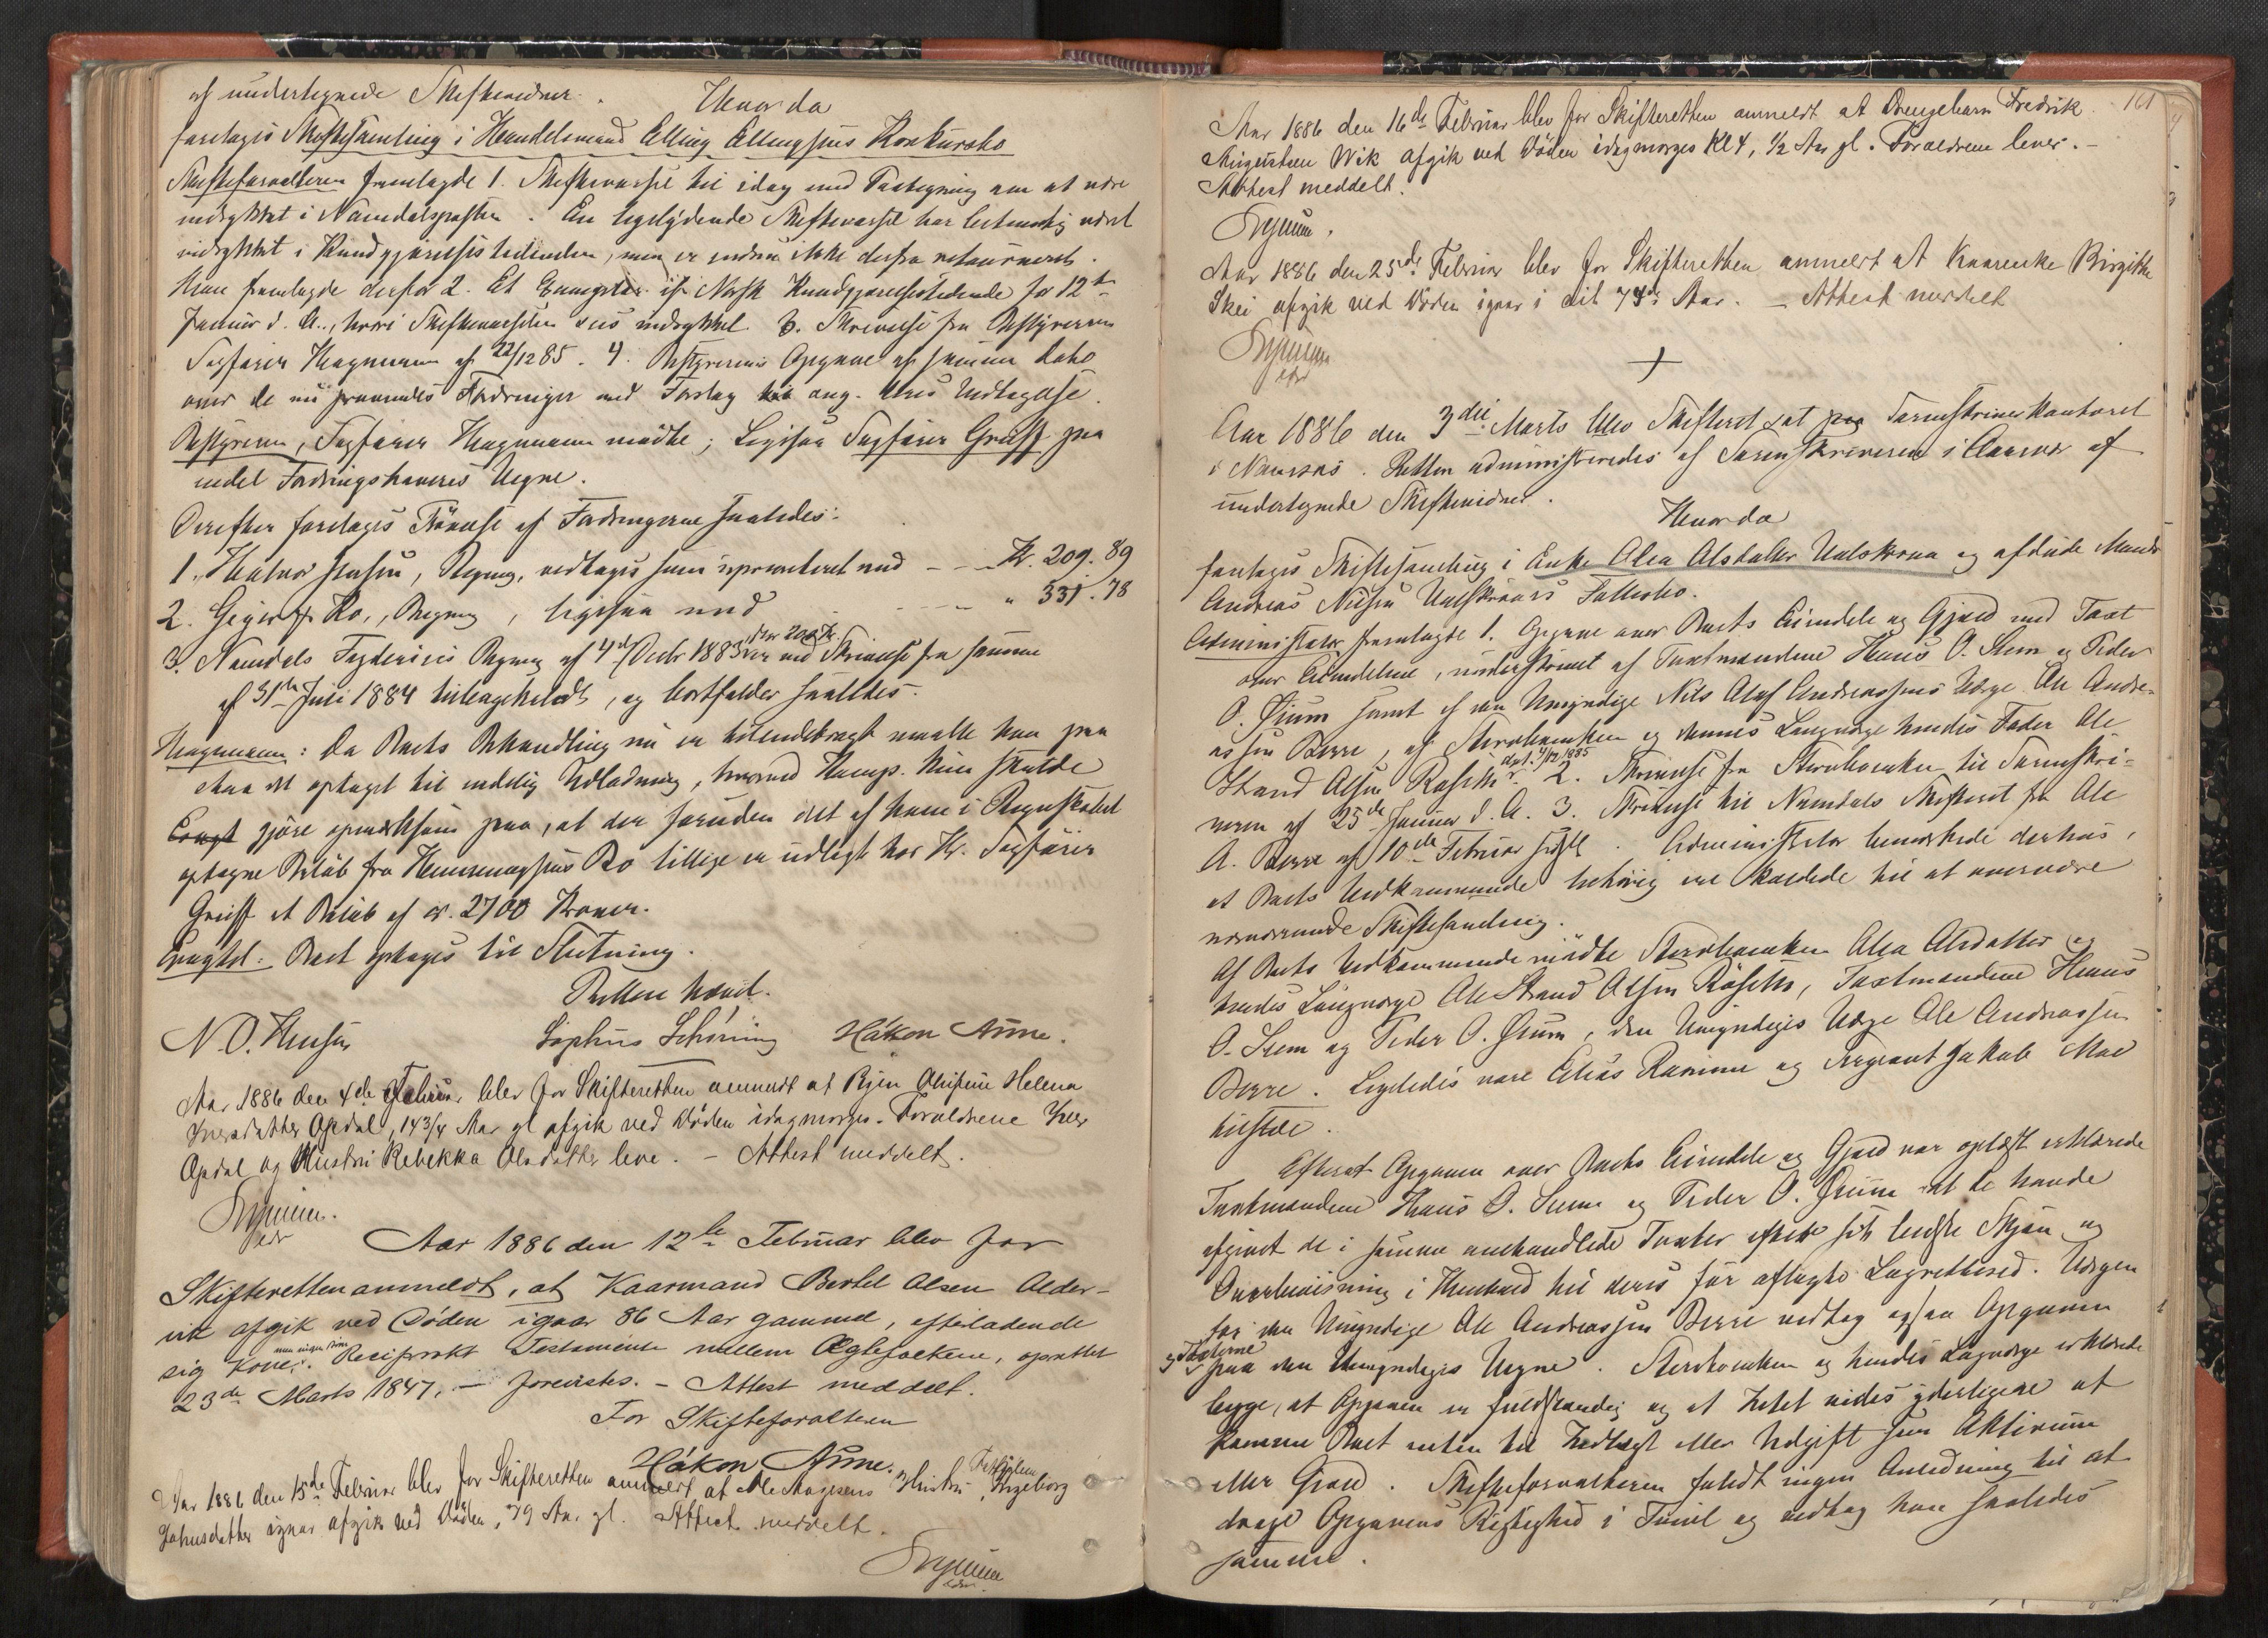 af undertegnede Skiftevidner.
Hvorda
foretoges Skiftesamling i Handelsmand Elling Ellingsens Konkursbo
Skifteforvalteren fremlagde 1. Skiftevarsel til idag med Paategning om at være
indrykket i Namdalsposten. En ligelydende Skiftevarsel har bestemt været
indrykket i Kundgjørelsestidenden, men er endnu ikke derfra returneret.
Man fremlagde derfor 2. Et Exemplar af Norsk Kundgjørelsestidende for 12te
Januar d. A., hvori Skiftevarselet sees indrykket. 3. Skrivelse fra Bestyreren
Sagfører Hagmann af 22/12 85. 4. Bestyrerens Opgave af samme Dato
over de nu prøvendes Fordringer med Forslag ang. deres Vedtagelse.
Bestyreren, Sagfører Hagmann mødte; Ligesaa Sagfører Grüff paa
endel Fordringshaveres Vegne.
Derefter foretoges Prøvelse af Fordringerne saaledes:
1. Halvor Jensen, Regning, vedtages som uprioriteret med - - - Kr. 209.89
2. Geijer & Ko., Regning, ligesaa med - - - " 331.78
3. Namdals Fogderies Regning af 4de Decbr 1883 stor 200 Kr. er ved Skrivelse fra samme
af 31te Juli 1884 tilbagekaldt, og bortfalder saaledes.
Hagmann: Da Boets Behandling nu er tilendebragt maatte han paa-
staa det optaget til endelig Udlodning, hvorved Komp. kun skulde
Eragt gjøre opmærksom paa, at der foruden det af ham i Regnskabet
optagne Beløb fra Henningsens Bo tillige er udlagt hos Hr. Sagfører
Grüff et Beløb af cr. 2700 Kroner.
Eragtet: Boet optages til Slutning.
Retten hævet.
N. O. Hansen Sophus Schøning Håkon Aune.
Aar 1886 den 4de Februar blev for Skifteretten anmeldt at Pigen Olufine Helena
Iversdatter Opdal, 14 3/4 Aar gl afgik ved Døden idagmorges. Forældrene Iver
Opdal og Hustru Rebekka Olsdatter leve. - Attest meddelt.
Aar 1886 den 12te Februar blev for
Skifteretten anmeldt, at Kaarmand Bertel Olsen Alder-
vik afgik ved Døden igaar 86 Aar gammel, efterladende
sig Kone, men ingen Børn. Reciprokt Testamente mellem Ægtefolkene, oprettet
23de Marts 1847, - forevistes. - Attest meddelt.
For Skifteforvalteren
Håkon Aune.
Aar 1886 den 15de Februar blev for Skifteretten anmeldt at Ole Magnsens Hustru, Ingeborg
Johnsdatter igaar afgik ved Døden, 79 Aar gl. Attest meddelt.
161
Aar 1886 den 16de Februar blev for Skifteretten anmeldt at Drengebarn Fredrik
Augustsen Wik afgik ved Døden idagmorges Kl 4, 1/2 Aar gl. Forældrene lever. -
Attest meddelt.
Aar 1886 den 25de Februar blev for Skifteretten anmeldt at Kaarenke Birgitte
Skei afgik ved Døden igaar i sit 73de Aar. - Attest meddelt
Aar 1886 den 3die Marts blev Skifteret sat paa Sorenskriverkontoret
i Namsos. Retten administreredes af Sorenskriveren i Nærvær af
undertegnede Skiftevidner.
Hvorda
foretoges Skiftesamling i Enke Olea Olsdatter Halskraa og afdøde Mands
Andreas Nilsen Halskraas Fællesbo.
Administrator fremlagde 1. Opgave over Boets Eiendele og Gjæld med Taxt
over Eiendelene, underskrevet af Taxtmændene Hans O. Sem og Peder
O. Grum samt af den Umyndige Nils Oluf Andreassens Værge Ole Andre-
assen Berre, af Stervboenken og dennes Laugværge hendes Fader Ole
Strand Olsen Røseth. dat. 4/12 1885 2. Skrivelse fra Stervboenken til Sorenskri-
veren af 25de Januar d. A. 3. Skrivelse til Namdals Skifteret fra Ole
A. Berre af 10de Februar sidstl. Administrator bemærkede derhos,
at Boets Vedkommende behørig ere kaldede til at overvære
nærværende Skiftesamling.
Af Boets Vedkommende mødte Stervboenken Olea Olsdatter og
hendes Laugværge Ole Strand Olsen Røseth, Taxtmændene Hans
O. Sem og Peder O. Grum, den Umyndiges Værge Ole Andreassen
Berre. Ligeledes vare Elias Ramine og Sergeant Jakob Moe
tilstede.
Efterat Opgaven over Boets Eiendele og Gjæld var oplæst erklærede
Taxtmændene Hans O. Sem og Peder O. Grum at de havde
afgivet de i samme omhandlede Taxter efter sit bedste Skjøn og
Overbevisning i Henhold til deres før aflagte Lagrettesed. Værgen
for den Umyndige Ole Andreassen Berre vedtog ogsaa Opgaven
og Taxterne paa den Umyndiges Vegne. Stervboenken og hendes Lagværge erklærede
begge, at Opgaven er fuldstændig og at Intet vides yderligere at
komme Boet enten til Indtægt eller Udgift som Aktivum
eller Gjæld. Skifteforvalteren fandt ingen Anledning til at
drage Opgavens Rigtighed i Tvivl og vedtog han saaledes
samme.